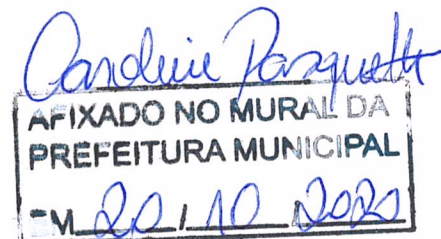 Caroline Pasquetti
AFIXADO NO MURAL DA
PREFEITURA MUNICIPAL
EM 20 / 10 / 2020